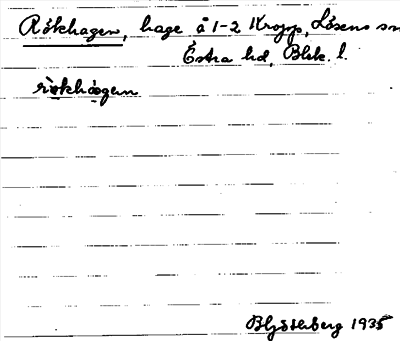 Rökhagen, hage å 1-2 Kropp, Lösens sn
Östra hd, Blek. l.
rö̀khá̱gen
1935